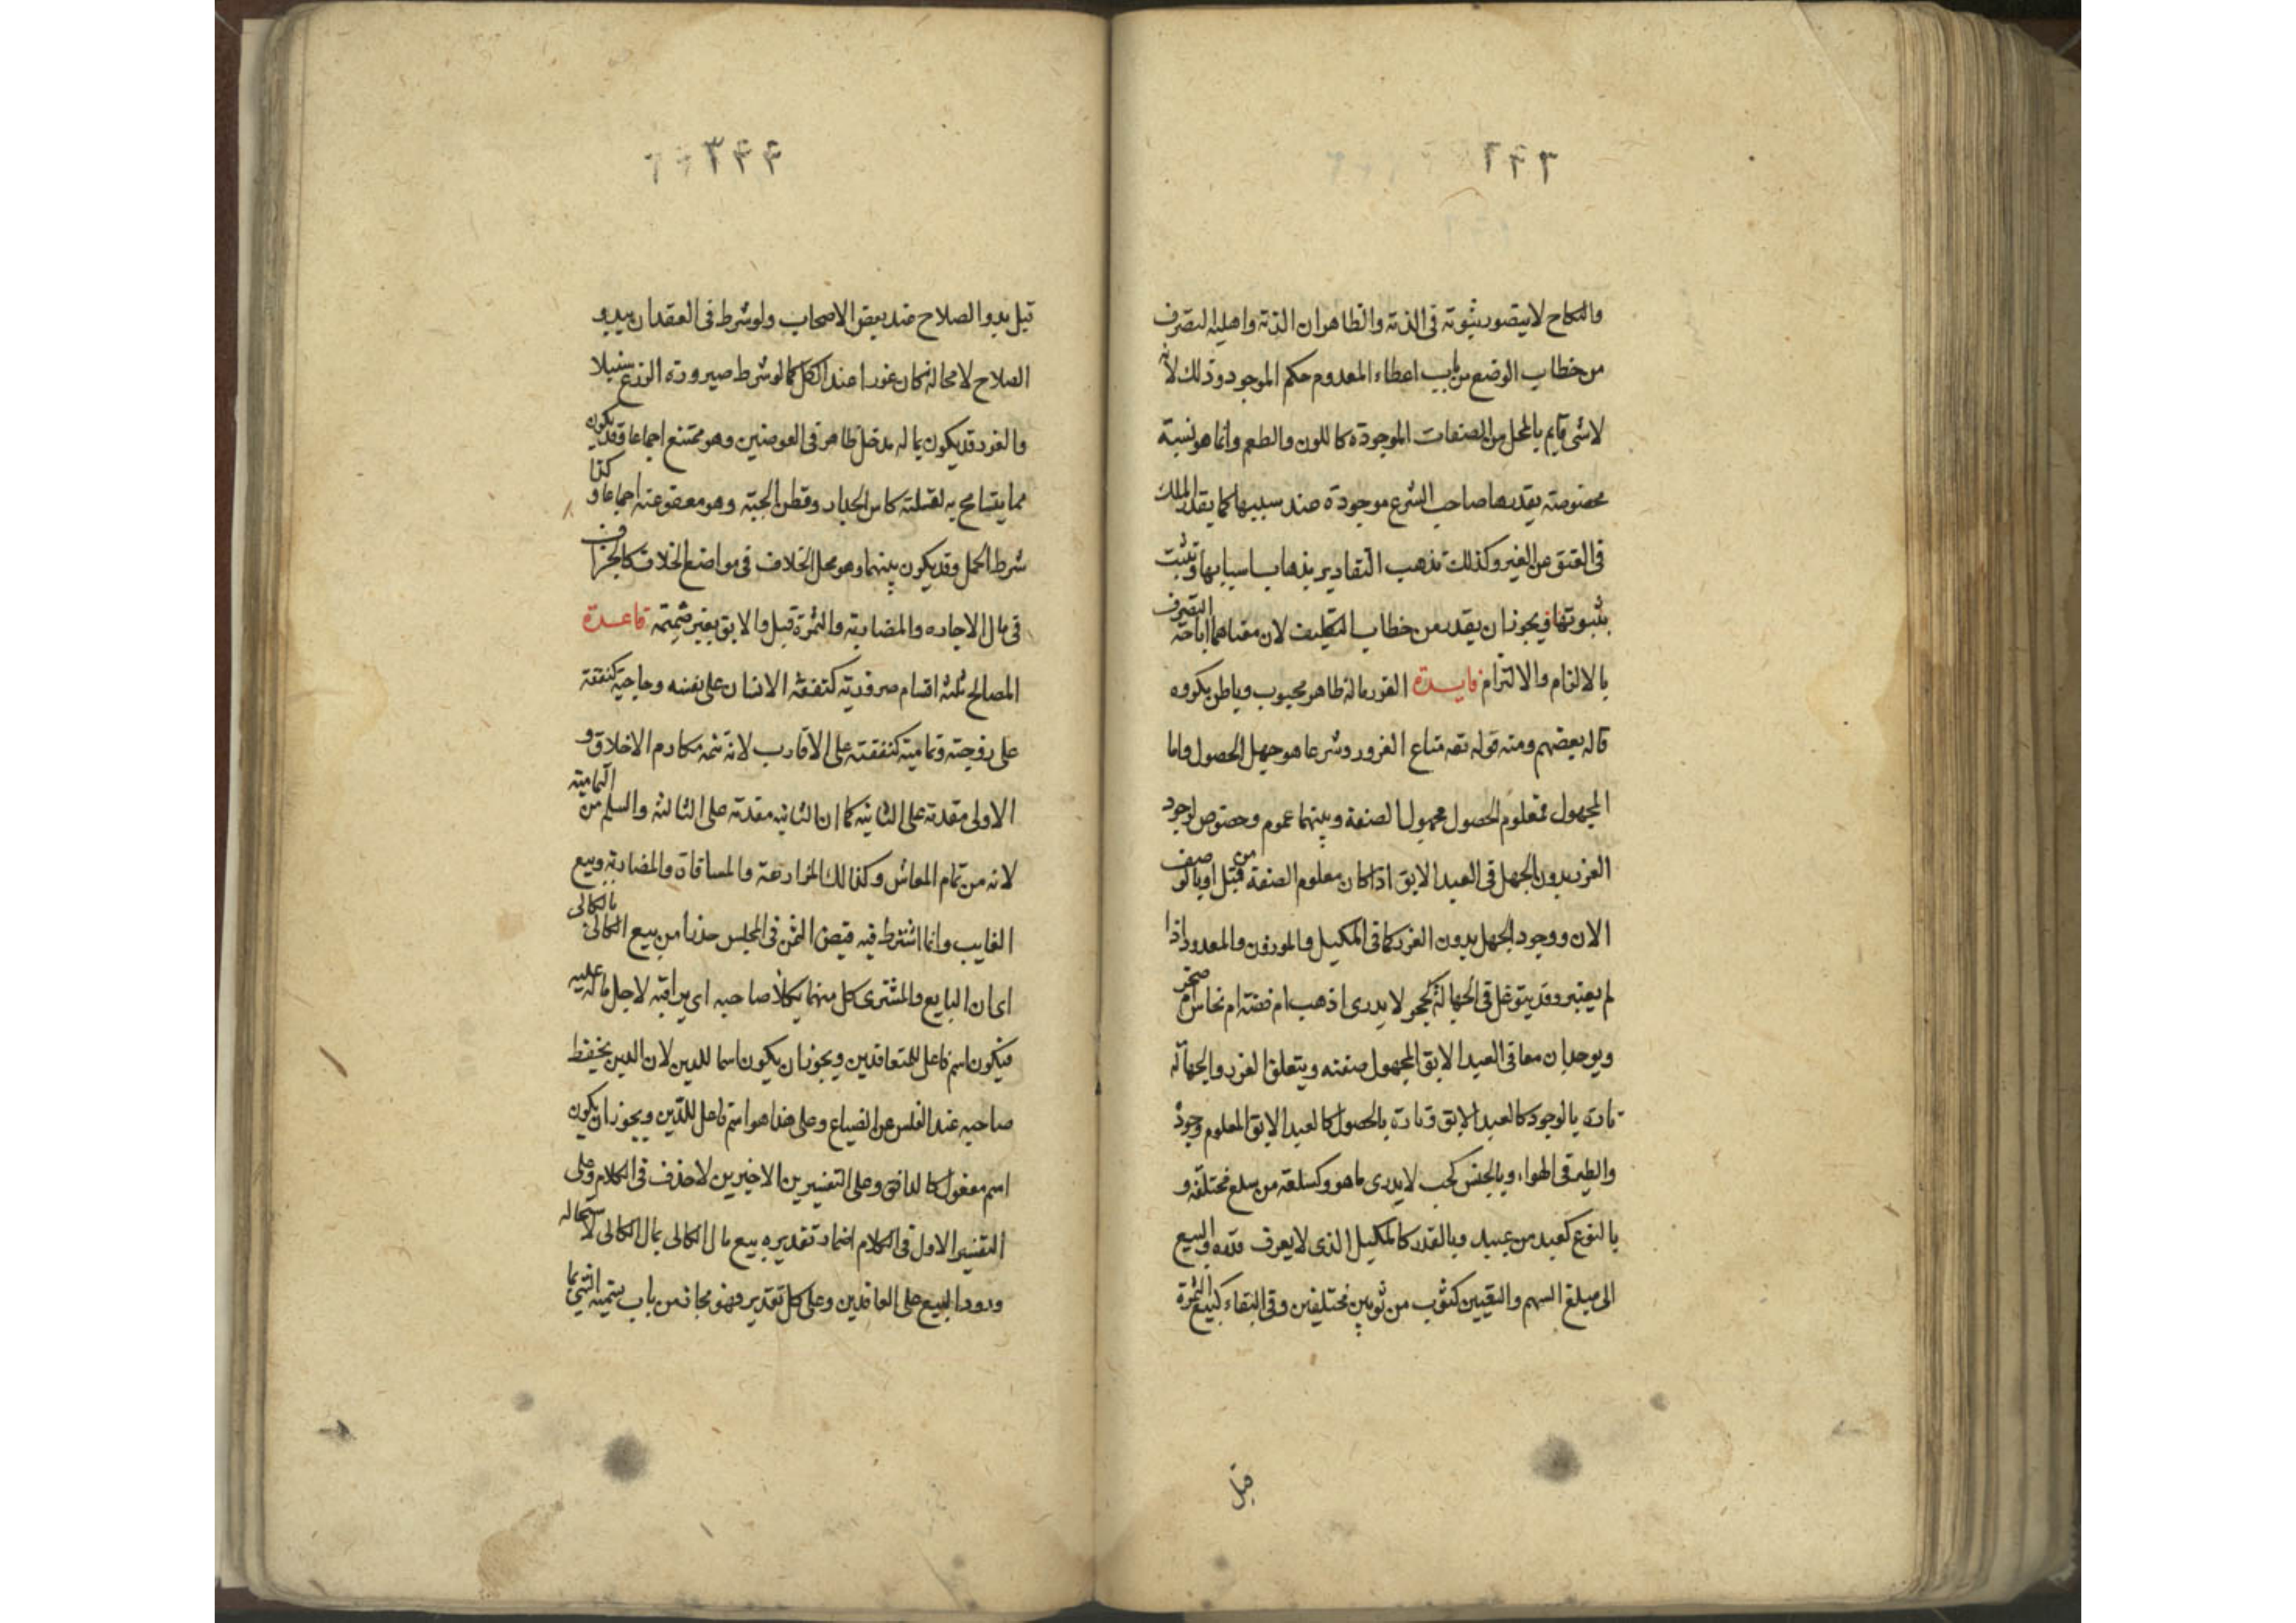 والنكاح لا يتصور ثبوته فى الذمة والظاهر ان الذمة واهلية التصرف
من خطاب الوضع من باب اعطاء المعدوم حكم الموجود وذلك لانه
لا شى قايم بالمحل من الصفات الموجودة كاللون والطعم وانما هو نسبة
مخصوصة يقدرها صاحب الشرع موجودة عند سببها كما يقدر الملك
فى العتق عن الغير وكذلك تذهب التقادير بذهاب اسبابها وتثبت
بثبوتها ويجوز ان يقدر من خطاب التكليف لان معناهما اباحة التصرف
بالالزام والالتزام فايدة الغرر ماله ظاهر محبوب وباطن مكروه
قاله بعضهم ومنه قوله تعه متاع الغرور وشرعا هو جهل الحصول واما
المجهول فمعلوم الحصول مجهول الصفة وبينهما عموم وخصوص لوجود
الغرر بدون الجهل فى العبد الابق اذا كان معلوم الصفة من قبل او بالوصف
الان ووجود الجهل بدون الغرر كما فى المكيل والموزون والمعدود اذا
لم يعتبر وقد يتوغل فى الجهالة كحجر لا يدرى اذهب ام فضة ام نحاس ام صخر
ويوجدان معا فى العبد الابق المجهول صفته ويتعلق الغرر والجهالة
تارة بالوجود كالعبد الابق وتارة بالحصول كالعبد الابق المعلوم وجوده
والطير فى الهواء وبالجنس كحب لا يدرى ما هو وكسلعة من سلع مختلفة و
بالنوع كعبد من عبيد وبالقدر كالمكيل الذى لا يعرف قدره والبيع
الى مبلغ السهم والتعيين كثوب من ثوبين مختلفين وفى البقاء كبيع الثمرة
قبل
قبل بدو الصلاح عند بعض الاصحاب ولو شرط فى العقد ان يبدو
الصلاح لا محالة كان غررا عند الكل كما لو شرط صيرورة الزرع سنبلا
والغرر قد يكون بما له مدخل ظاهر فى العوضين وهو ممتنع اجماعا وقد يكون
مما يتسامح به لقلته كاس الجدار وقطن الجبة وهو معفو عنه اجماعا وكذا
شرط الحمل وقد يكون بينهما وهو محل الخلاف فى مواضع الخلاف كالجزاف
فى مال الاجاره والمضاربة والثمرة قبل والابق بغير ضميمة قاعدة
المصالح ثلثة اقسام ضرورية كنفقة الانسان على نفسه وحاجية كنفقته
على زوجته وتمامية كنفقته على الاقارب لانه تتمه مكارم الاخلاق و
الاولى مقدمة على الثانية كما ان الثانية مقدمة على الثالثة والسلم من التمامية
لانه من تمام المعاش وكذا لك المزارعة والمساقاة والمضاربة وبيع
الغايب وانما اشترط فيه قبض الثمن فى المجلس حذرا من بيع الكالى بالكالى
اى ان البايع والمشترى كل منهما يكلأ صاحبه اى يراقبه لاجل ماله عليه
فيكون اسم فاعل للمتعاقدين ويجوز ان يكون اسما للدين لان الدين يحفظ
صاحبه عند الفلس عن الضياع وعلى هذا هو اسم فاعل للدين ويجوز ان يكون
اسم مفعول كالدافق وعلى التفسيرين الاخيرين لا حذف فى الكلام وعلى
التفسير الاول فى الكلام اضمار تقديره بيع مال الكالى بمال الكالى لاستحالة
ورود البيع على العاقدين وعلى كل تقدير فهو مجاز من باب تسمية الشى بما